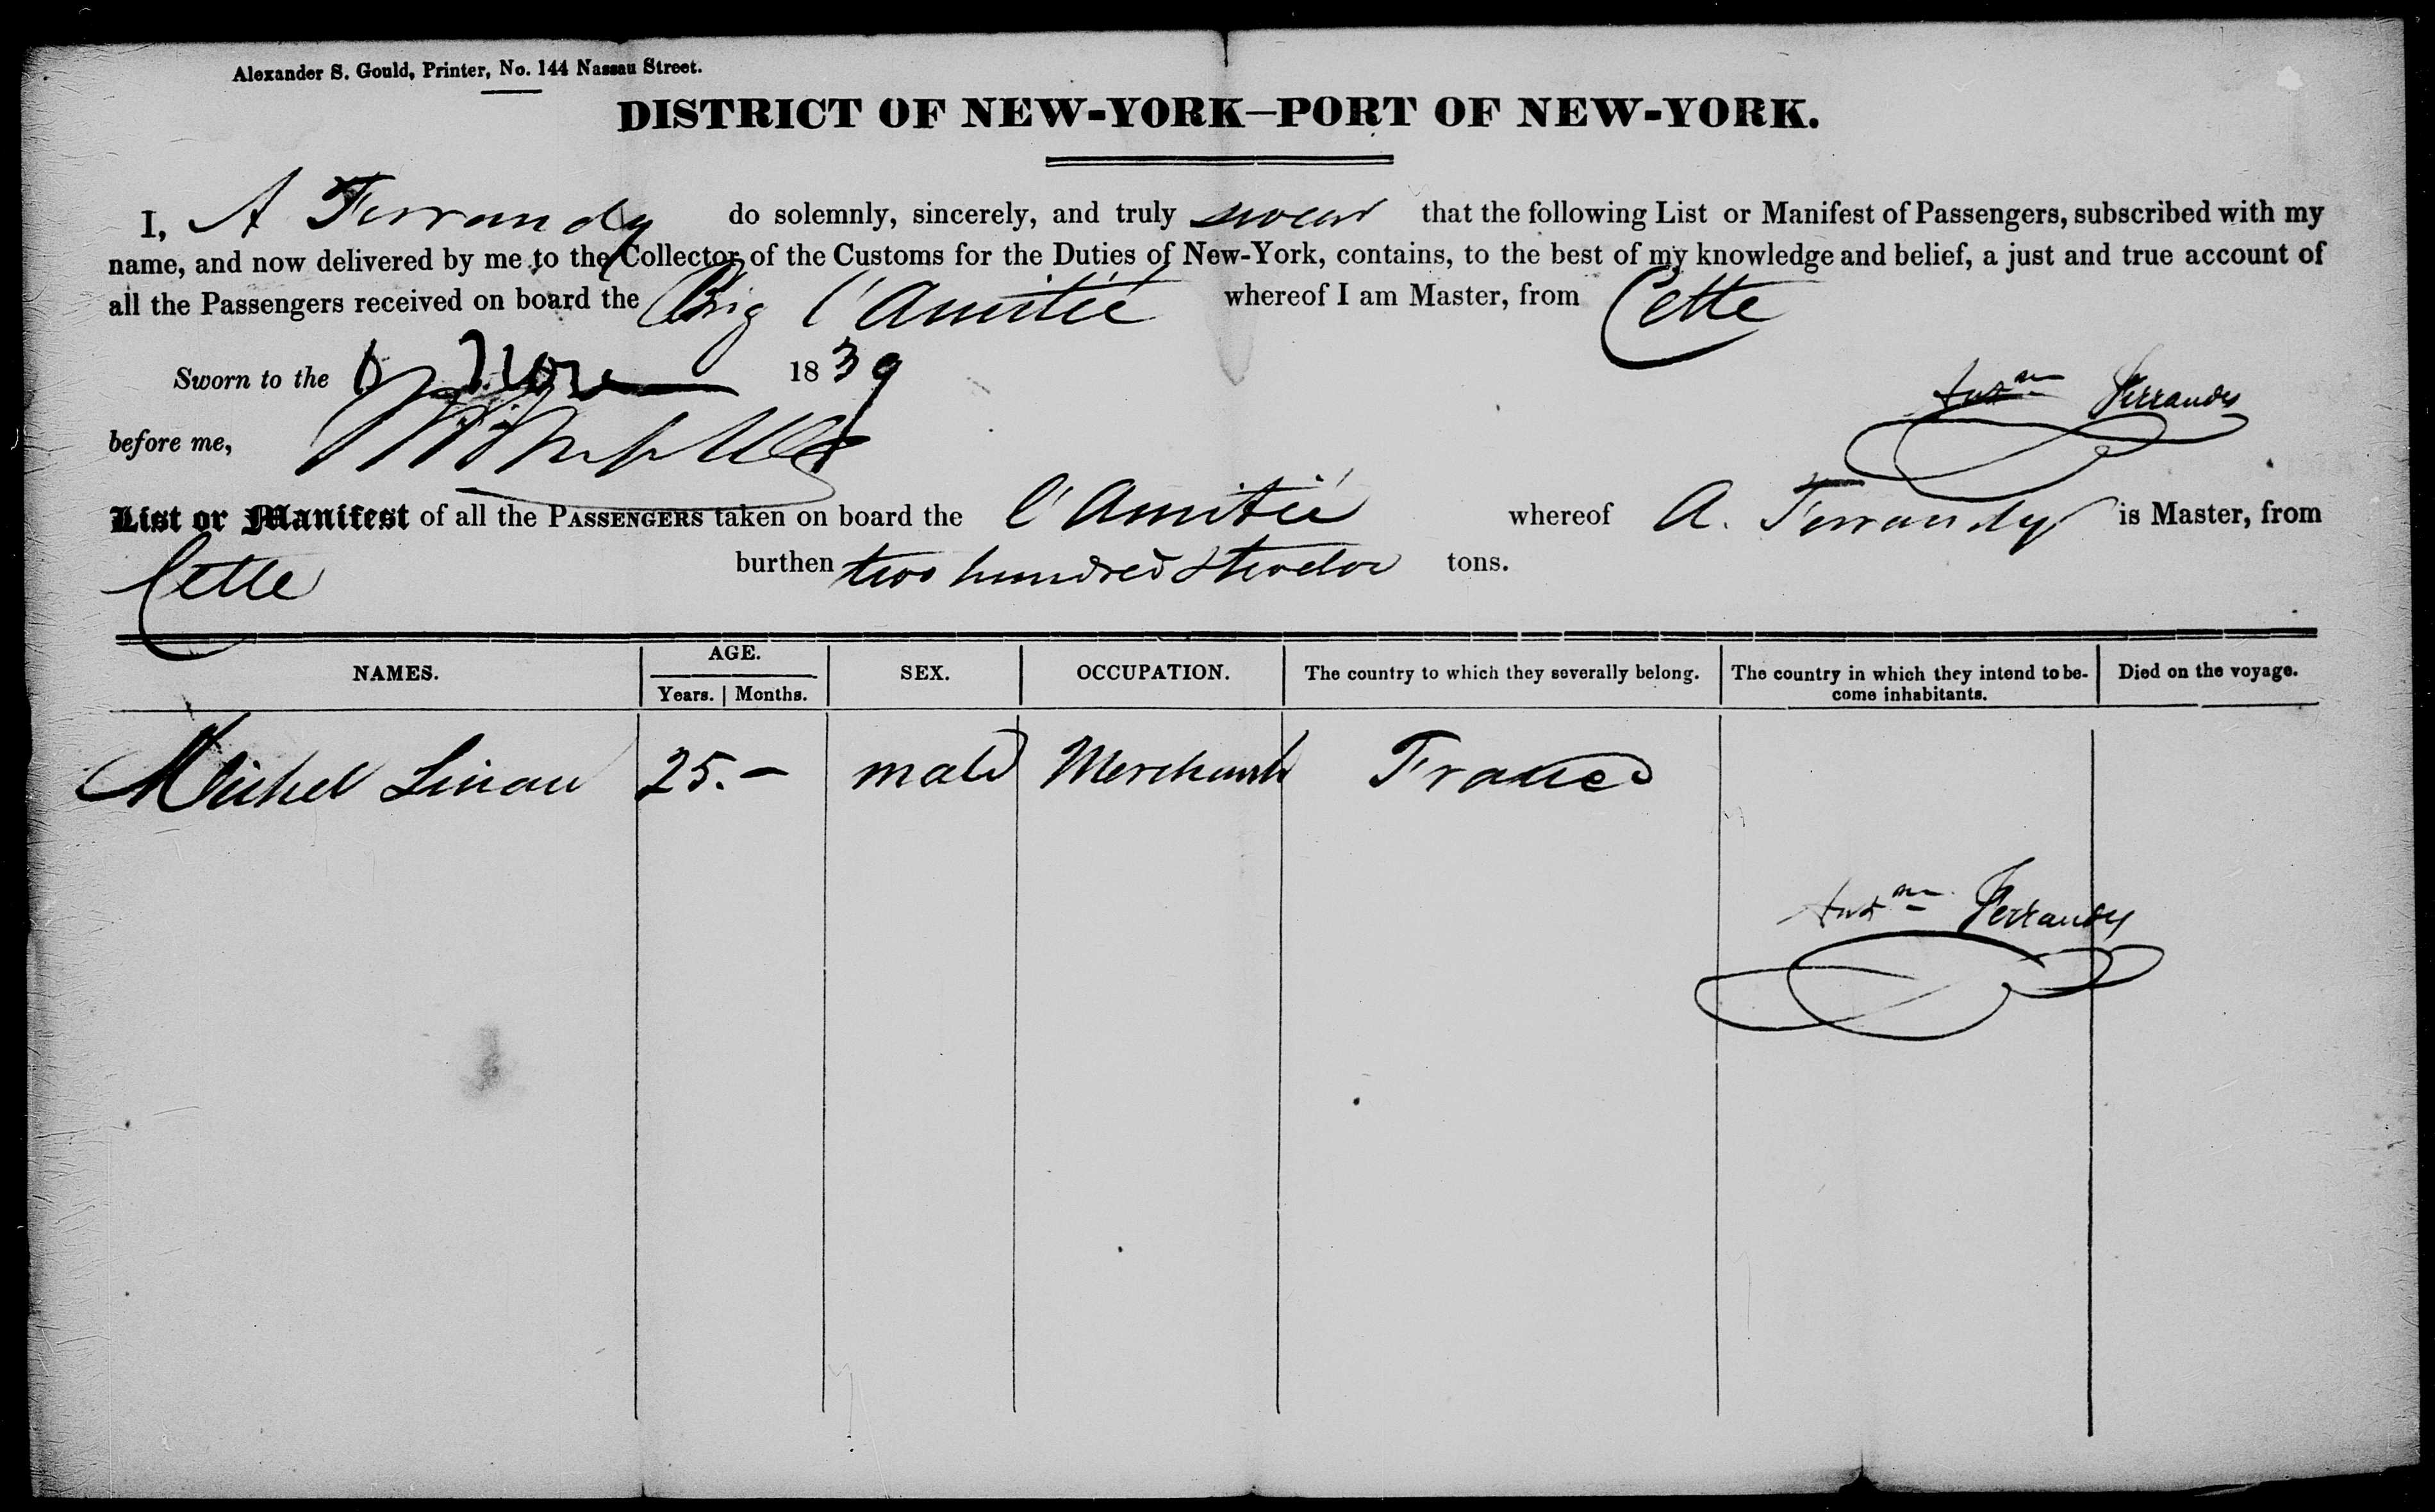 Alexander S. Gould, Printer, No. 144 Nassau Street.
DISTRICT OF NEW-YORK—PORT OF NEW-YORK.
I, A Ferrandy do solemnly, sincerely, and truly swear that the following List or Manifest of Passengers, subscribed with my
name, and now delivered by me to the Collector of the Customs for the Duties of New-York, contains, to the best of my knowledge and belief, a just and true account of
all the Passengers received on board the Brig l'Amitié whereof I am Master, from Cette
Sworn to the 6 Nov 1839
Ferrandy
before me,
List or Manifest of all the PASSENGERS taken on board the l'Amitié whereof A. Ferrandy is Master, from
Cette burthen two hundred & twelve tons.
NAMES. AGE. SEX. OCCUPATION. The country to which they severally belong. The country in which they intend to be- Died on the voyage.
Years. Months. come inhabitants.
Michel 25.– male Merchant France
Ferrandy